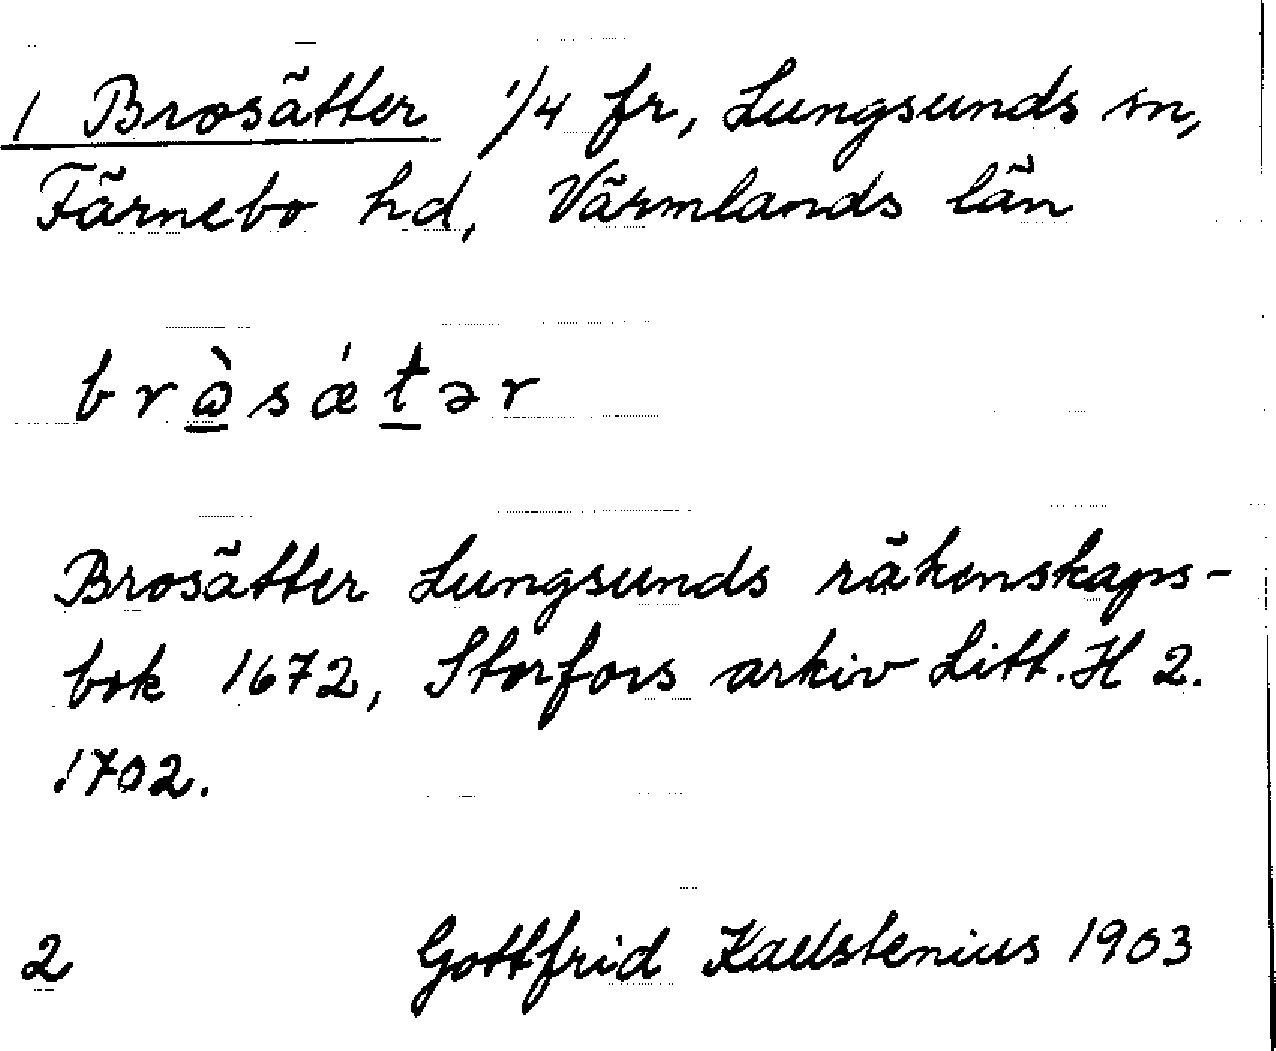 1 Brosätter 1/4 fr, Lungsunds sn,
Färnebo hd, Värmlands län
bràsǽtər
Brosätter Lungsunds räkenskaps-
bok 1672, Storfors arkiv Litt. H 2.
1702.
2 Gottfrid Kallstenius 1903